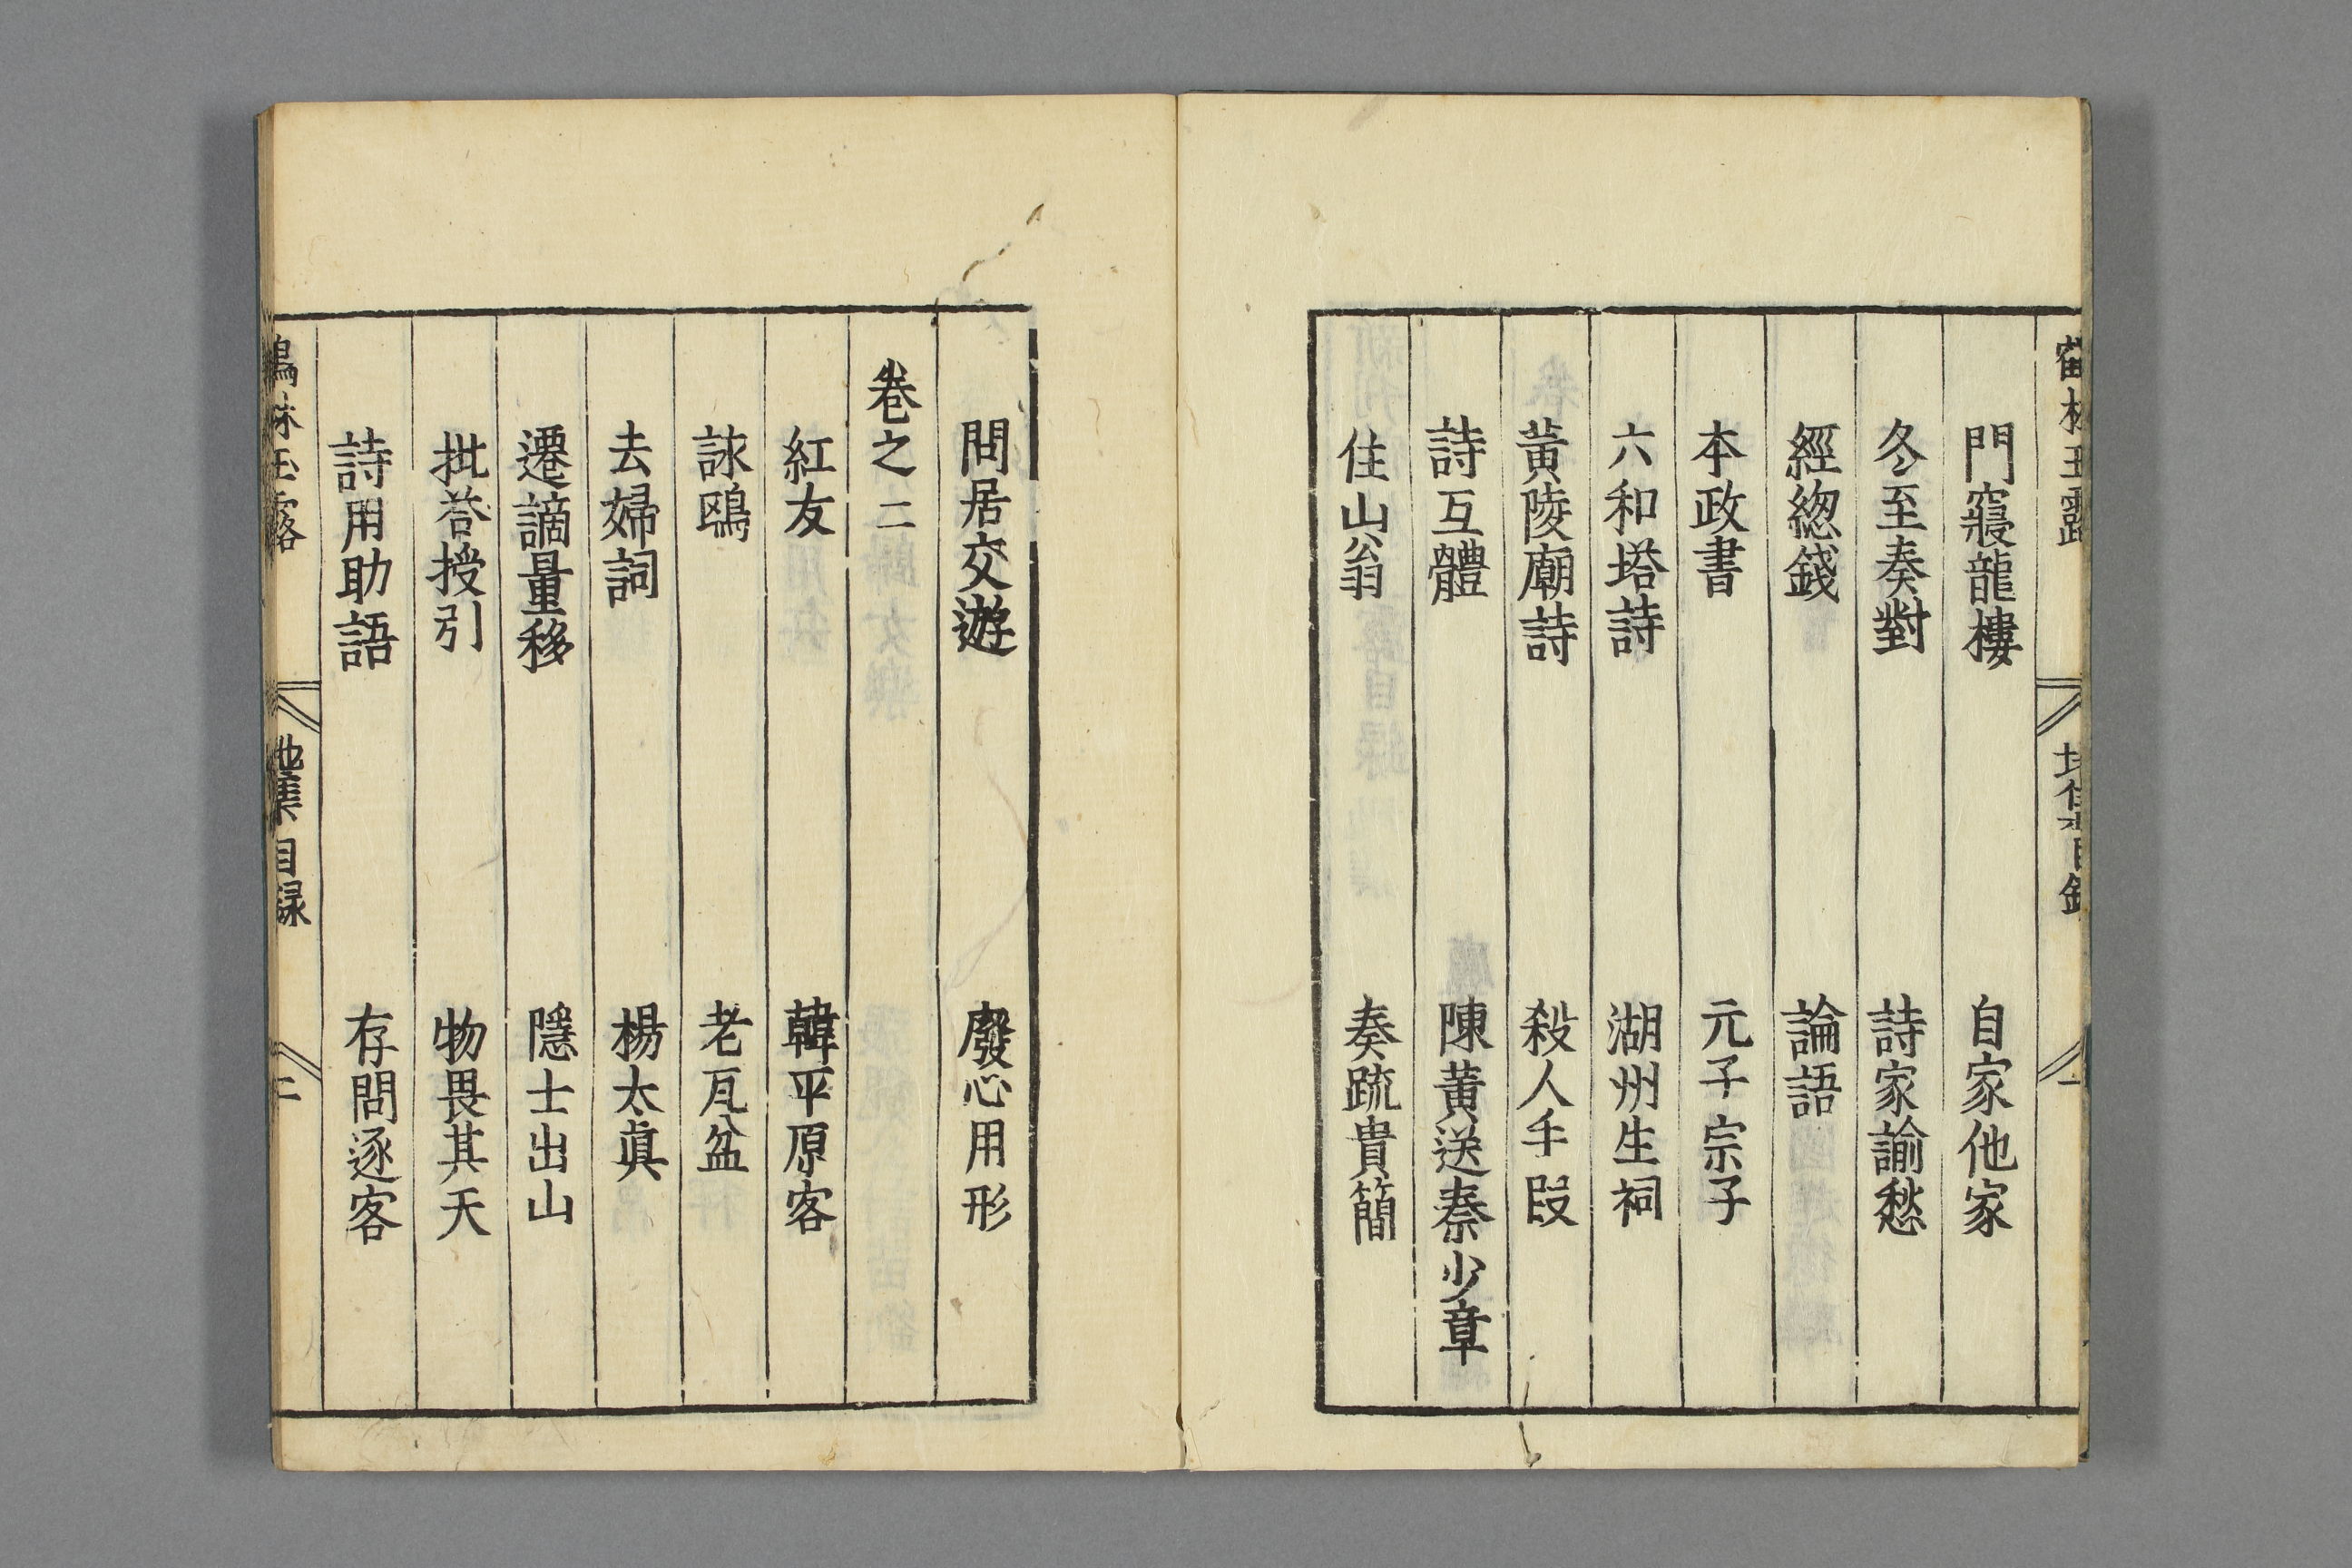 門寢龍樓　自家他家
冬至奏對　詩家諭愁
經緫錢　論語
本政書　元子宗子
六和塔詩　湖州生祠
黃陵廟詩　殺人手段
詩互體　陳黃送秦少章
住山翁　奏疏貴簡
問居交遊　廢心用形
卷之二
紅友　韓平原客
詠鷗　老瓦盆
去婦詞　楊太眞
遷謫量移　隱士出山
批荅授引　物畏其天
詩用助語　存問逐客
林玉露　地集目録　二